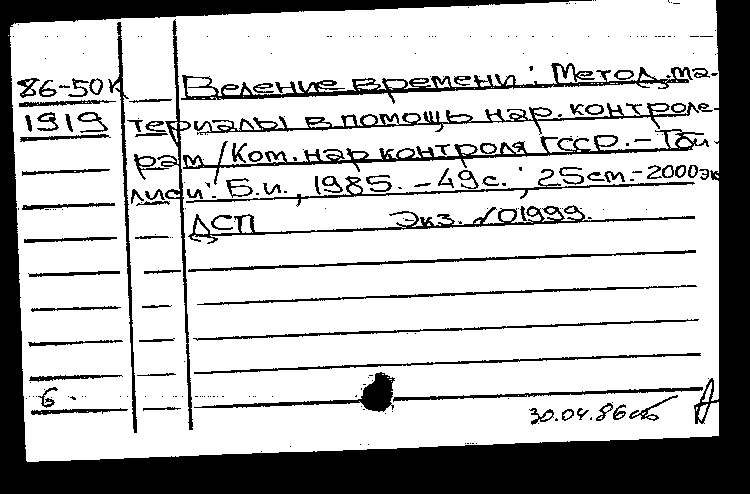 86-50К Веление времени: Метод. ма-
1919 териалы в помощь нар. контроле-
рам / Ком. нар контроля ГССР. - Тби-
лиси: Б.и., 1985. - 49с.; 25см. - 2000эк
ДСП Экз. №01999.
6.
30.04.86